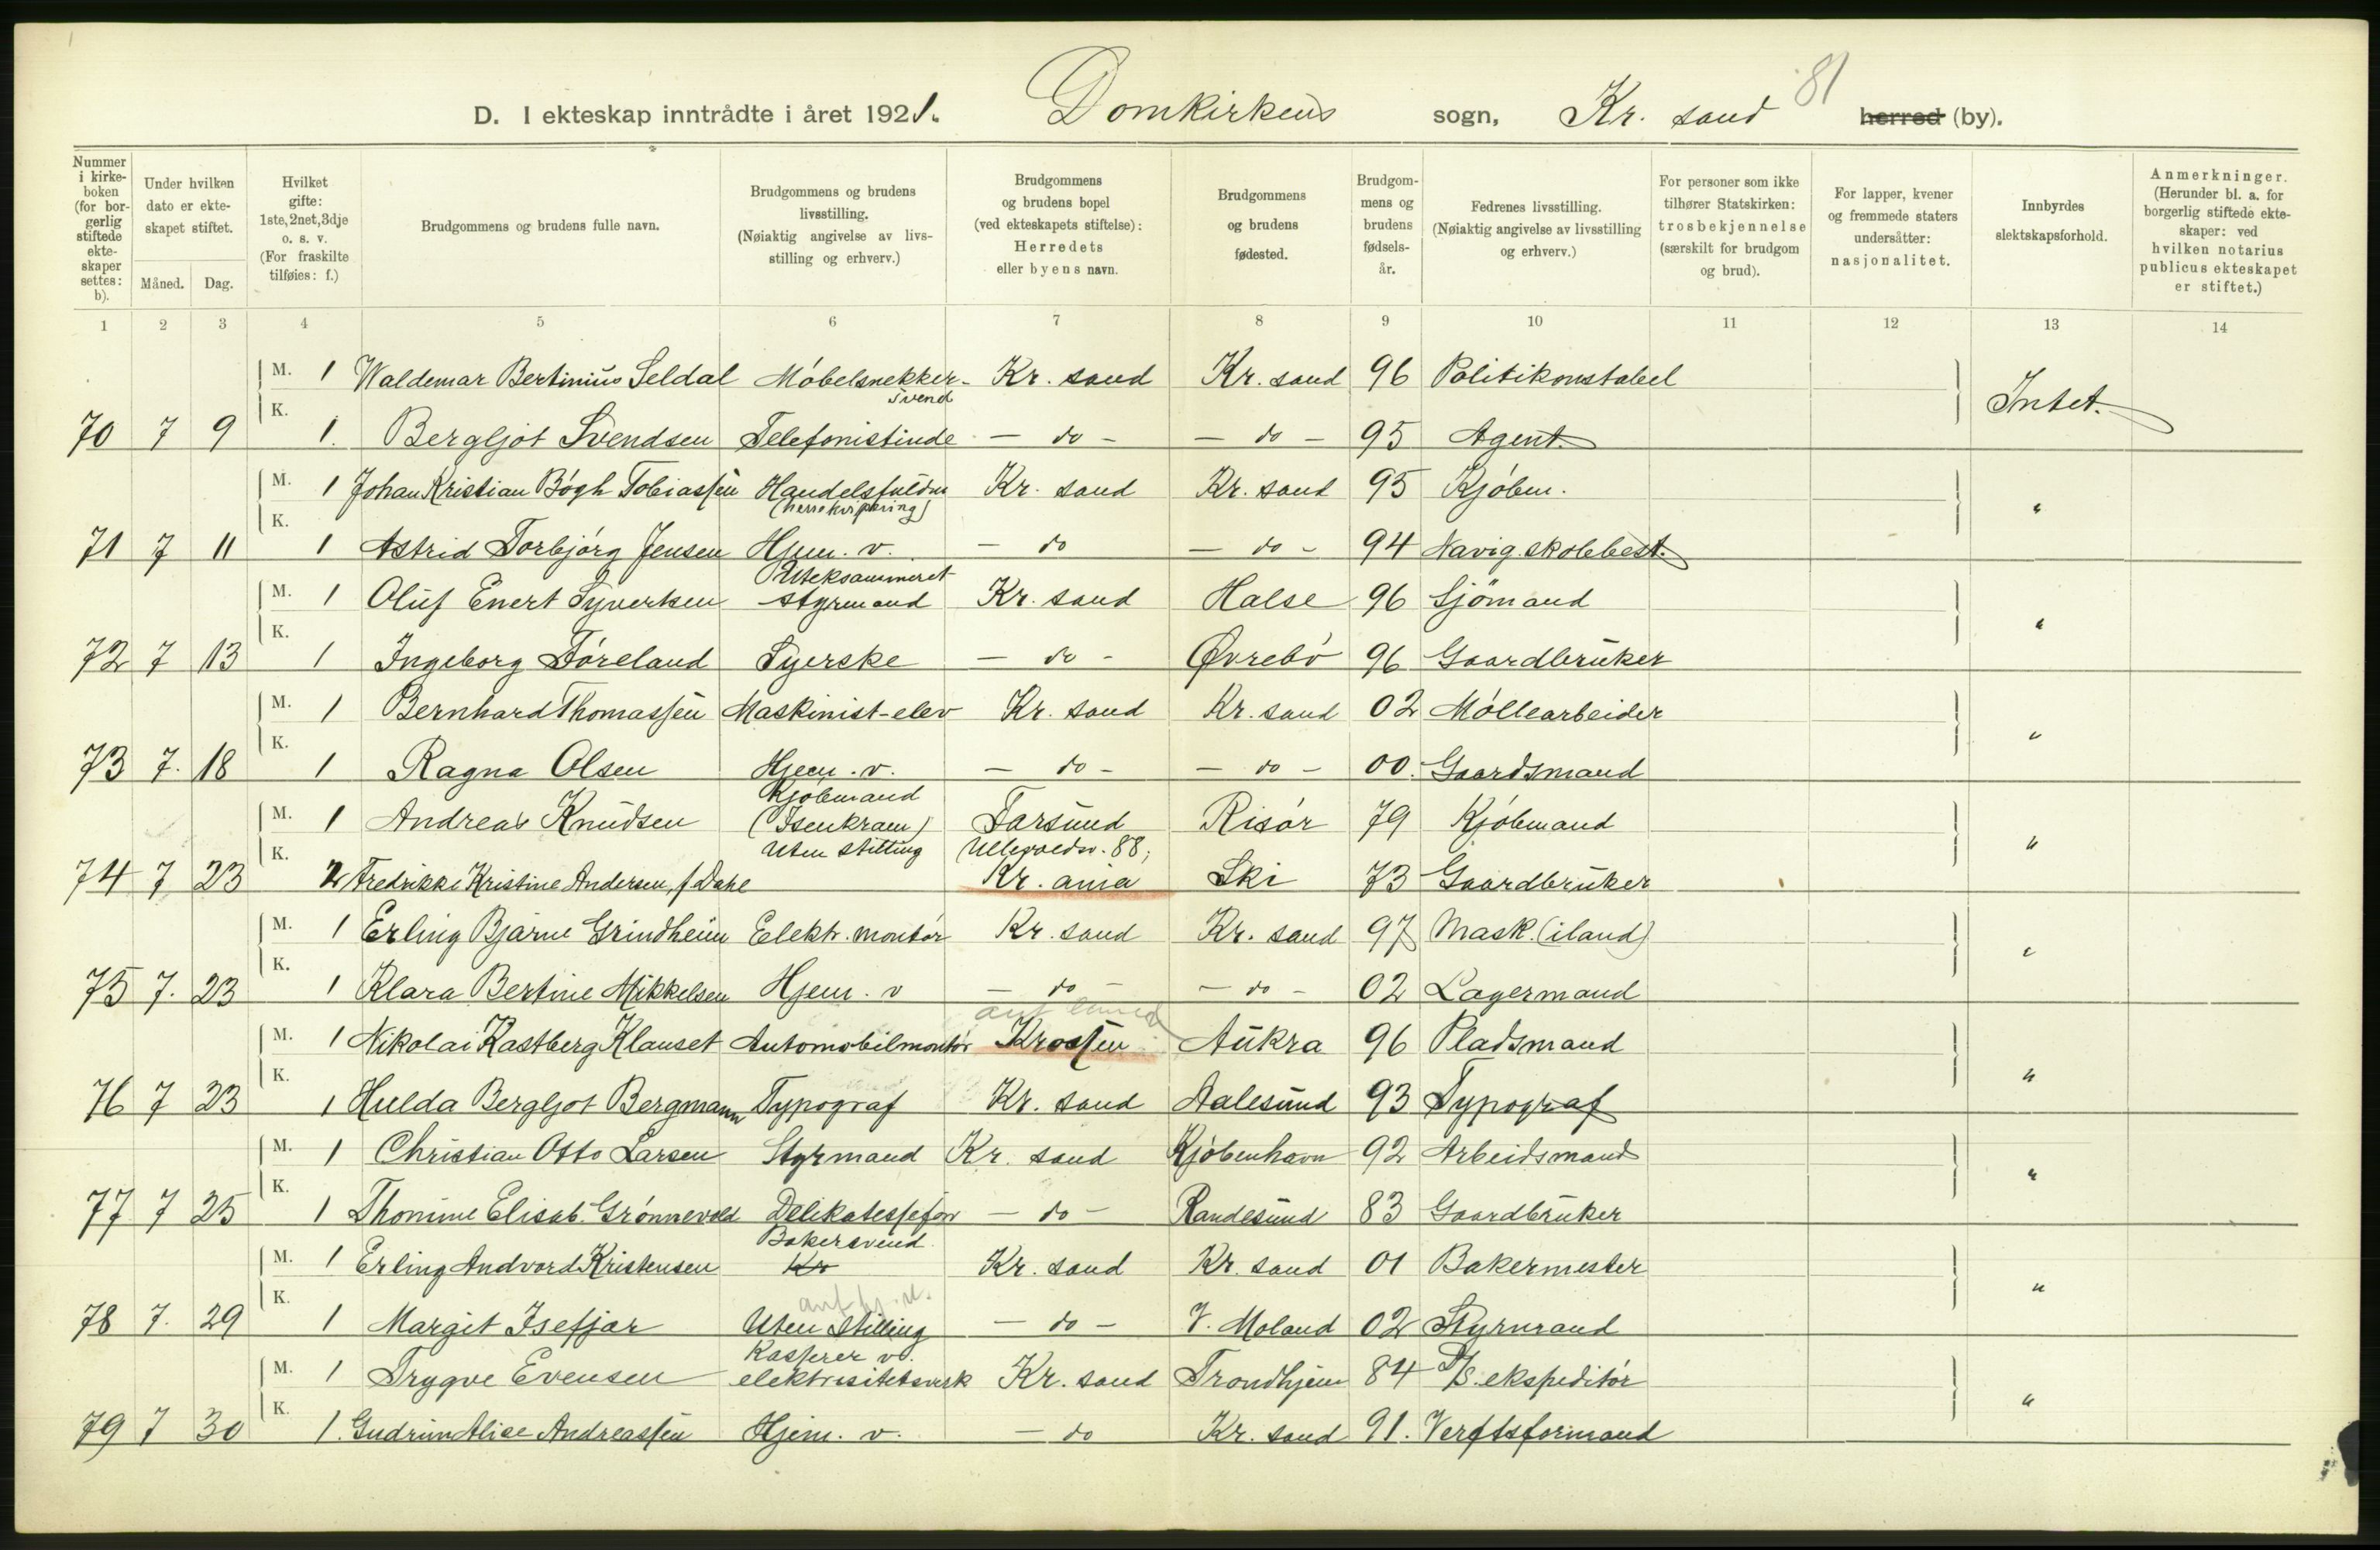 81
D. I ekteskap inntrådte i året 1921. Domkirkens sogn, Kr. sand herred (by).
Nummer i kirkeboken (for borgerlig stiftede ekteskaper settes: b).
Under hvilken dato er ekteskapet stiftet.
Måned. Dag.
Hvilket gifte: 1ste, 2net, 3dje o. s. v. (For fraskilte tilføies: f.)
Brudgommens og brudens fulle navn.
Brudgommens og brudens livsstilling. (Nøiaktig angivelse av livsstilling og erhverv.)
Brudgommens og brudens bopel (ved ekteskapets stiftelse): Herredets eller byens navn.
Brudgommens og brudens fødested.
Brudgommens og brudens fødselsår.
Fedrenes livsstilling. (Nøiaktig angivelse av livsstilling og erhverv.)
For personer som ikke tilhører Statskirken: trosbekjennelse (særskilt for brudgom og brud).
For lapper, kvener og fremmede staters undersåtter: nasjonalitet.
Innbyrdes slektskapsforhold.
Anmerkninger. (Herunder bl. a. for borgerlig stiftede ekteskaper: ved hvilken notarius publicus ekteskapet er stiftet.)
1 2 3 4 5 6 7 8 9 10 11 12 13 14
M. 1 Waldemar Bertinius Seldal Møbelsnekker-svend Kr. sand Kr. sand 96 Politikonstabel Intet.
70 7 9 K. 1. Bergljot Svendsen Telefonistinde - do - - do - 95 Agent.
M. 1 Johan Kristian Bøgh Tobiassen Handelsfuldm (herrekvipering) Kr. sand Kr. sand 95 Kjøbm. "
71 7 11 K. 1 Astrid Torbjørg Jensen Hjem. v. - do - do - 94 Navig.skolebest.
M. 1 Oluf Enert Syvertsen Uteksamineret styrmand Kr. sand Halse 96 Sjömand "
72 7 13 K. 1 Ingeborg Føreland Syerske - do - Øvrebö 96 Gaardbruker
M. 1 Bernhard Thomassen Maskinist-elev Kr. sand Kr. sand 02 Møllearbeider "
73 7. 18 K. 1 Ragna Olsen Hjem. v. - do - - do - 00. Gaardsmand
M. 1 Andreas Knudsen Kjøbmand (Isenkram) Farsund Risør 79 Kjøbmand "
74 7 23 K. 2 Fredrikke Kristine Andersen, f Dahl Uten stilling Ullevoldsv. 88; Kr. ania Ski 73 Gaardbruker
M. 1 Erling Bjarne Grindheim Elektr. montør Kr. sand Kr. sand 97 Mask. (iland) "
75 7. 23 K. 1 Klara Bertine Mikkelsen Hjem. v - do - - do - 02 Lagermand
M. 1 Nikolai Kastberg Klauset Automobilmontør Krossen Aukra 96 Pladsmand "
76 7 23 K. 1 Hulda Bergljot Bergmann Typograf Kr. sand Aalesund 93 Typograf
M. 1 Christian Otto Larsen Styrmand Kr. sand Kjøbenhavn 92 Arbeidsmand "
77 7 25 K. 1 Thomine Elisab. Grønnevold Delikatessefor - do - Randesund 83 Gaardbruker
M. 1 Erling Andvord Kristensen Bakersvend Kr Kr. sand Kr. sand 01 Bakermester "
78 7. 29 K. 1 Margit Isefjær Uten stilling - do - V. Moland 02 Styrmand
M. 1 Trygve Evensen Kasserer v. elektrisitetsverk Kr. sand Trondhjem 84 D/S. ekspeditör "
79 7 30 K. 1. Gudrun Alice Andreassen Hjem. v. - do Kr. sand 91. Verftsformand